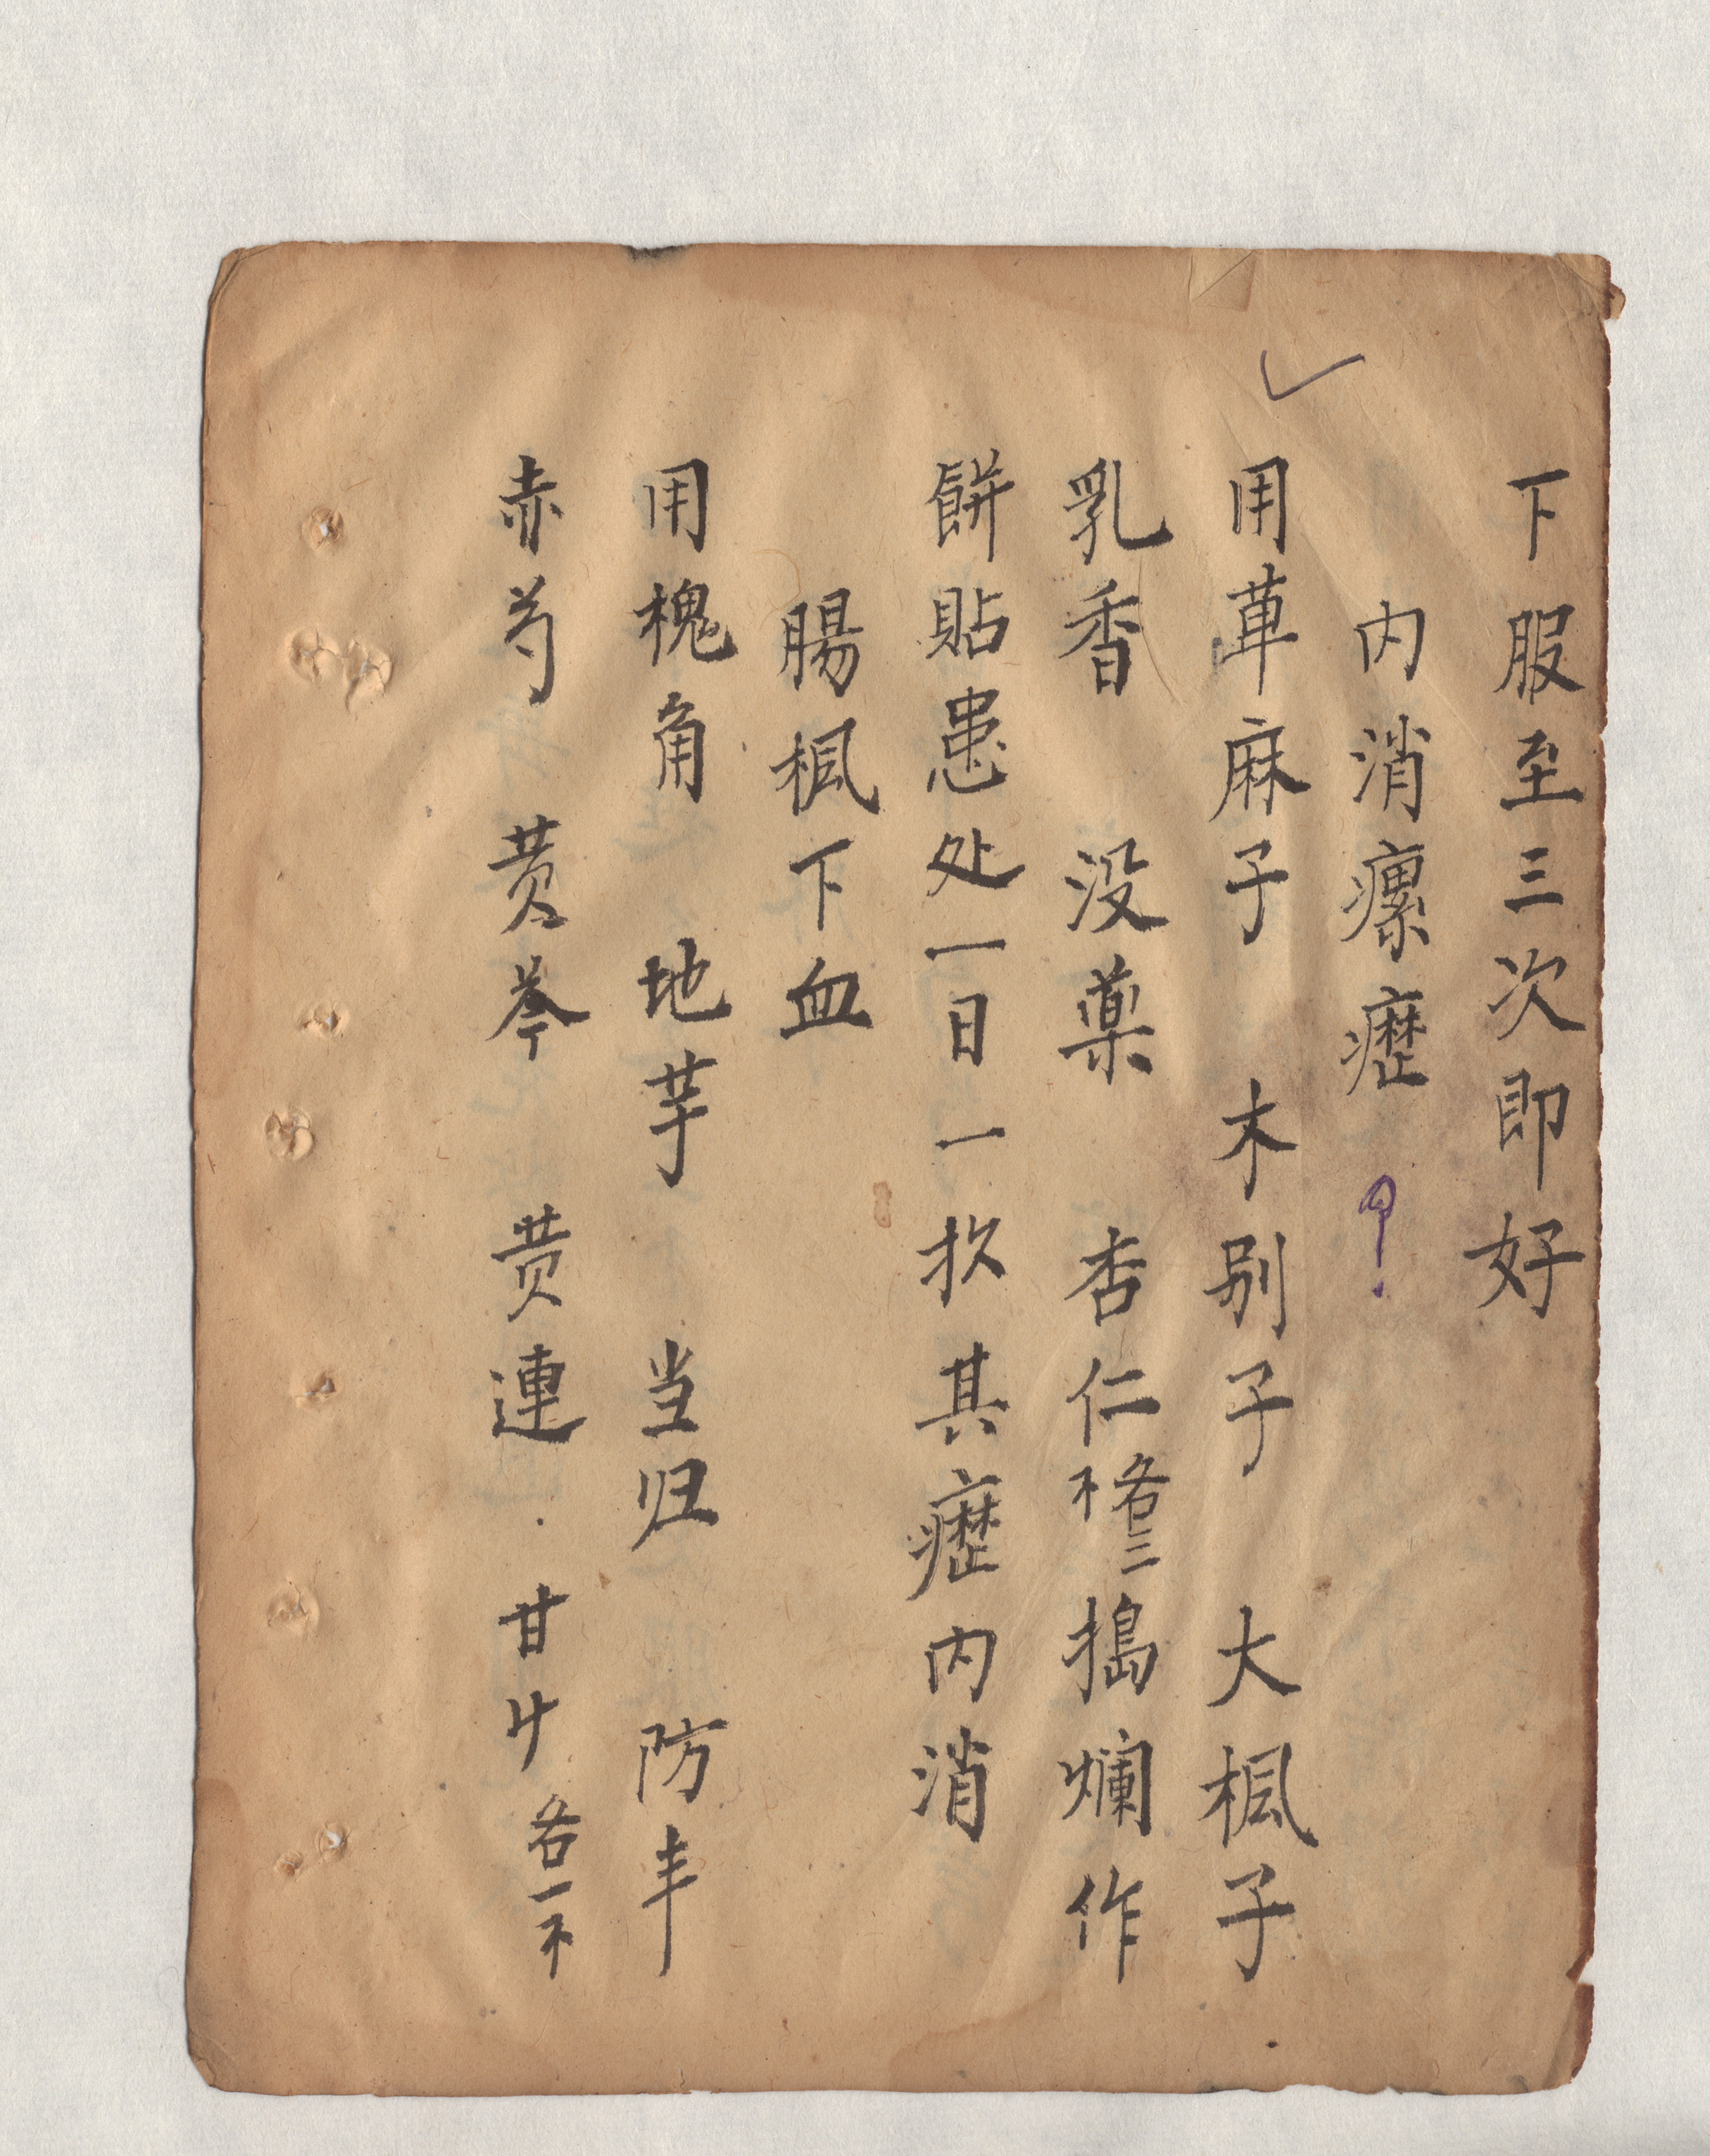 下服至三次即好
内消瘰癧 ?
用萆麻子 木别子 大楓子
乳香 没藥 杏仁各三 搗爛作
餅貼患处一日一换其癧内消
腸楓下血
用槐角 地芋 当归 防丰
赤芍 黄芩 黄連 甘廾 各一